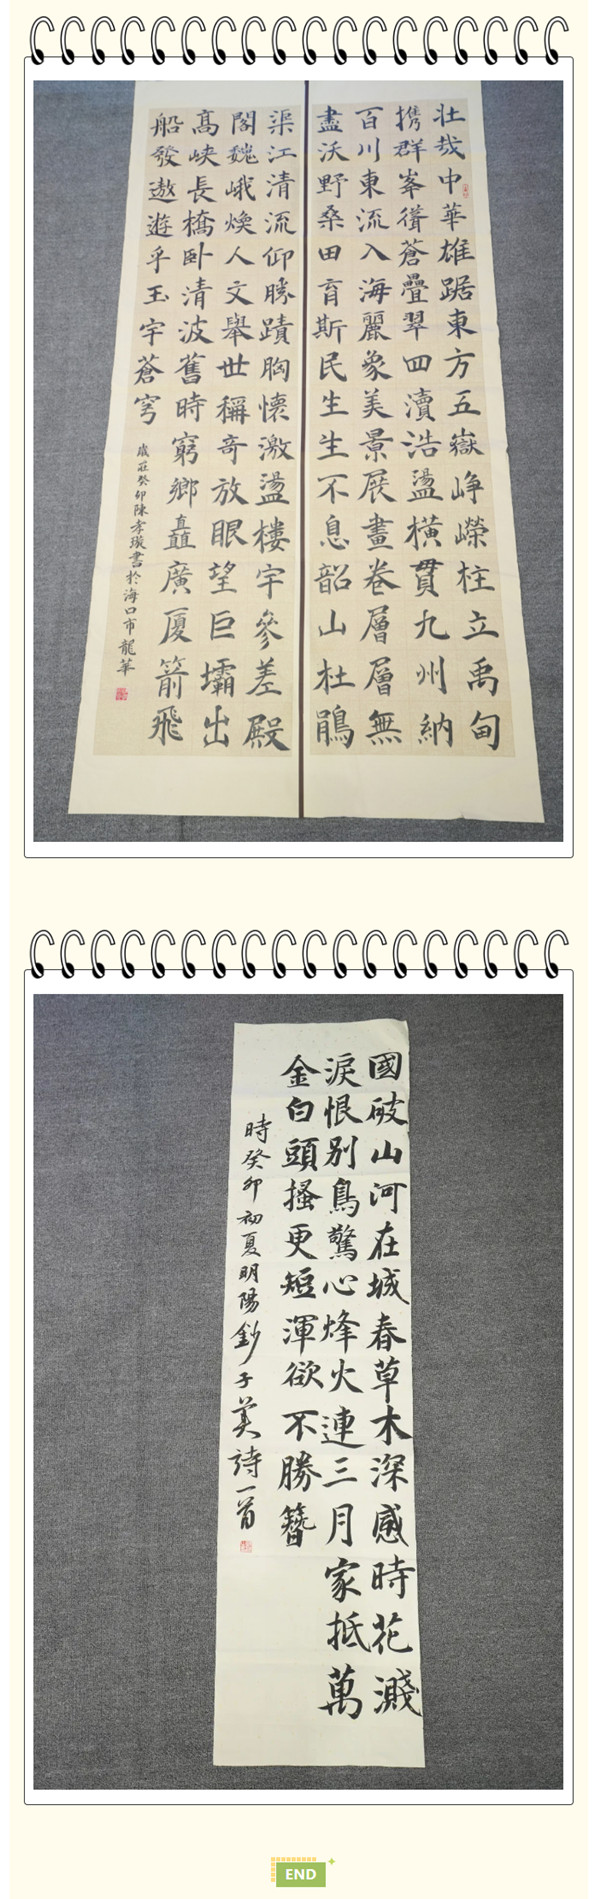 壮哉中華雄踞東方五嶽崢嶸柱立禹甸
携群峯徫蒼疊翠四瀆浩盪橫貫九州納
百川東流入海麗象美景展畫卷層層無
盡沃野桑田育斯民生生不息韶山杜鵑
渠江清流仰勝蹟胸懷激盪樓宇參差殿
閣巍峨煥人文舉世稱奇放眼望巨壩出
高峽長橋卧清波舊時窮鄉矗廣厦箭飛
船發遨遊乎玉宇蒼穹
歲在癸卯陳孝璇書於海口市龍華
國破山河在城春草木深感時花濺
淚恨別鳥驚心烽火連三月家抵萬
金白頭搔更短渾欲不勝簪
時癸卯初夏明陽鈔子美詩一首
END